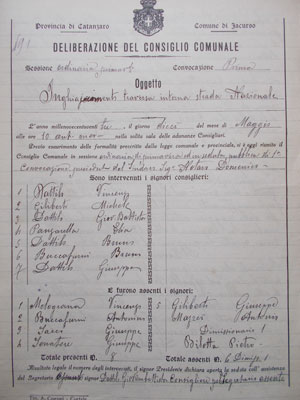 Provincia di Catanzaro Comune di Jacurso
DELIBERAZIONE DEL CONSIGLIO COMUNALE
Sessione ordinaria Convocazione Prima
Oggetto
traversa interna strada Nazionale
L'anno millenovecento tre, il giorno dieci del mese di Maggio
alle ore 10 ant. nella solita sala delle adunanze Consigliari.
Previo esaurimento delle formalità prescritte dalla legge comunale e provinciale, si è oggi riunito il
Consiglio Comunale in sessione ordinaria di primavera ed in seduta pubblica di 1ª
Convocazione, Sindaco Sig. Notaro Domenico
Sono intervenuti i signori consiglieri:
1 Dattilo Vincenzo
2 Giliberto Michele
3 Dattilo Giov. Battista
4 Panzarella Elia
5 Dattilo Bruno
6 Buccafurni Bruno
7 Dattilo Giuseppe
E furono assenti i signori:
1 Melegrana Vincenzo 5 Giliberto Giuseppe
2 Buccafurni Antonino 6 Mazzei Antonio
3 Giuseppe Dimissionario 1
4 Senatore Giuseppe Bilotta Pietro
Totale presenti N. 8 Totale assenti N. 6
Risultato legale il numero degli intervenuti, il signor Presidente dichiara aperta la seduta coll'assistenza
del Segretario signor Dattilo Giov. Battista Consigliere pel Segretario assente